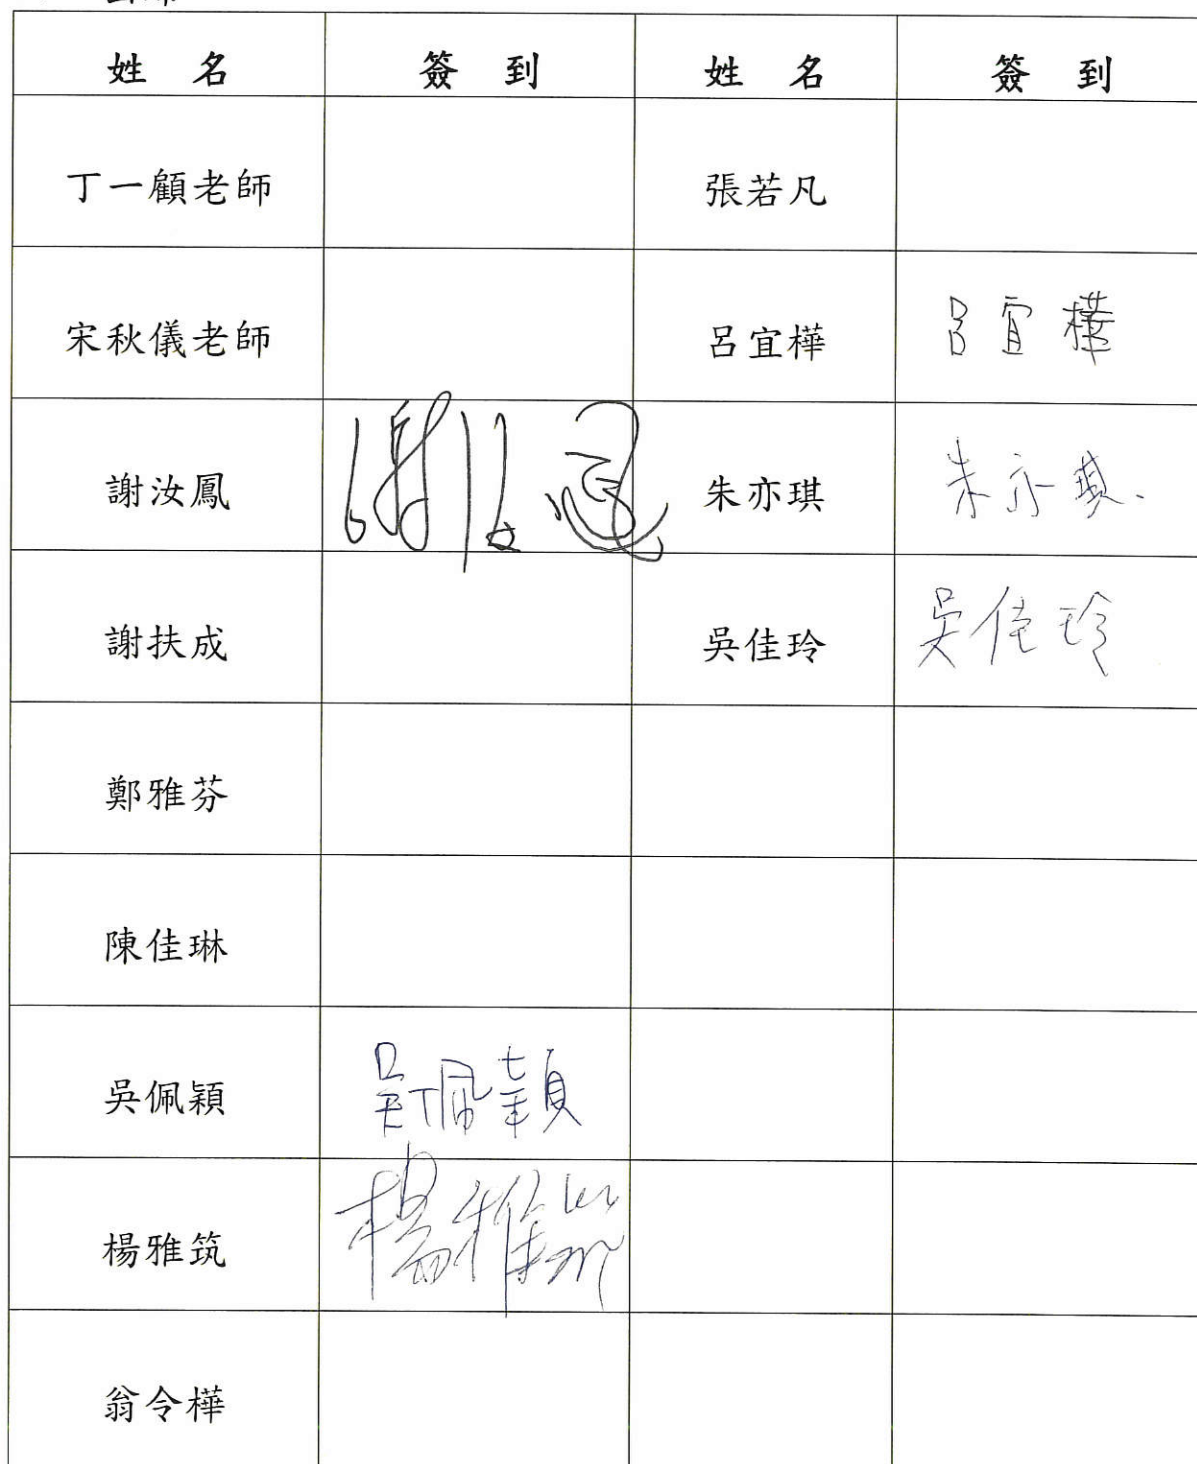 姓 名 簽 到 姓 名 簽 到
丁一顧老師 張若凡
宋秋儀老師 呂宜樺 呂宜樺
謝汝鳳 謝汝鳳 朱亦琪 朱亦琪.
謝扶成 吳佳玲 吳佳玲
鄭雅芬
陳佳琳
吳佩穎 吳佩穎
楊雅筑 楊雅筑
翁令樺